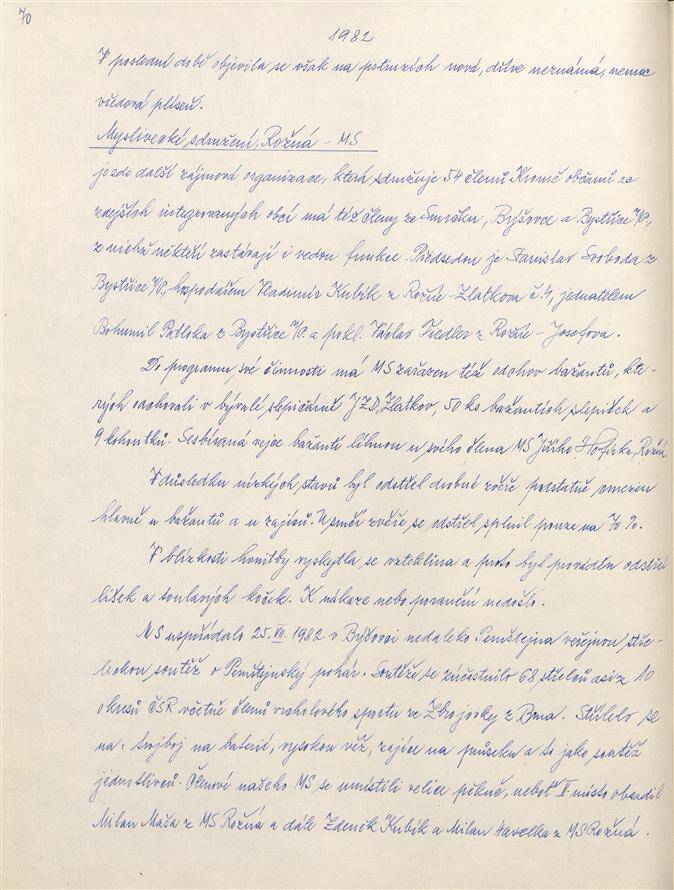 70
1982
V poslední době objevila se však na pstruzích nová, dříve neznámá, nemoc
vředová plíseň.
Myslivecké sdružení, Rožná – MS
je zde další zájmová organizace, která sdružuje 54 členů. Kromě občanů ze
zdejších integrovaných obcí má též členy ze Smrčku, Býšovce a Bystřice n/P.,
z nichž někteří zastávají i vedou funkce. Předsedou je Stanislav Svoboda z
Bystřice n/P., hospodářem Vladimír Kubík z Rožné – Zlatkova č. 4, jednatelem
Bohumil z Bystřice n/P. a pokl. Václav Fiedler z Rožné – Josefova.
Do programu své činnosti má MS zařazen též odchov bažantů, kte-
rých odchovali v bývalé slepičárně JZD, Zlatkov, 50 ks bažantích slepiček a
9 kohoutků. Sesbíraná vejce bažantů líhnou u svého člena MS Jiřího Rožná
V důsledku nízkých stavů byl odstřel drobné zvěře podstatně omezen
hlavně u bažantů a u zajíců. U srnčí zvěře se odstřel splnil pouze na 70 %.
V blízkosti honitby vyskytla se vzteklina a proto byl prováděn odstřel
lišek a toulavých koček. K nákaze nebo poranění nedošlo.
MS uspořádalo 25. VII. 1982 v Býšovci nedaleko Pernštejna veřejnou stře-
leckou soutěž o Pernštejnský pohár. Soutěže se zúčastnilo 68 střelců asi z 10
okresů ČSR včetně členů vrcholového sportu ze Zbrojovky z Brna. Střílelo se
na: trojboj na baterii, vysokou věž, zajíce na průseku a to jako soutěž
jednotlivců. Členové našeho MS se umístili velice pěkně, neboť II místo obsadil
Milan Máša z MS Rožná a dále Zdeněk Kubík a Milan Havelka z MS Rožná.